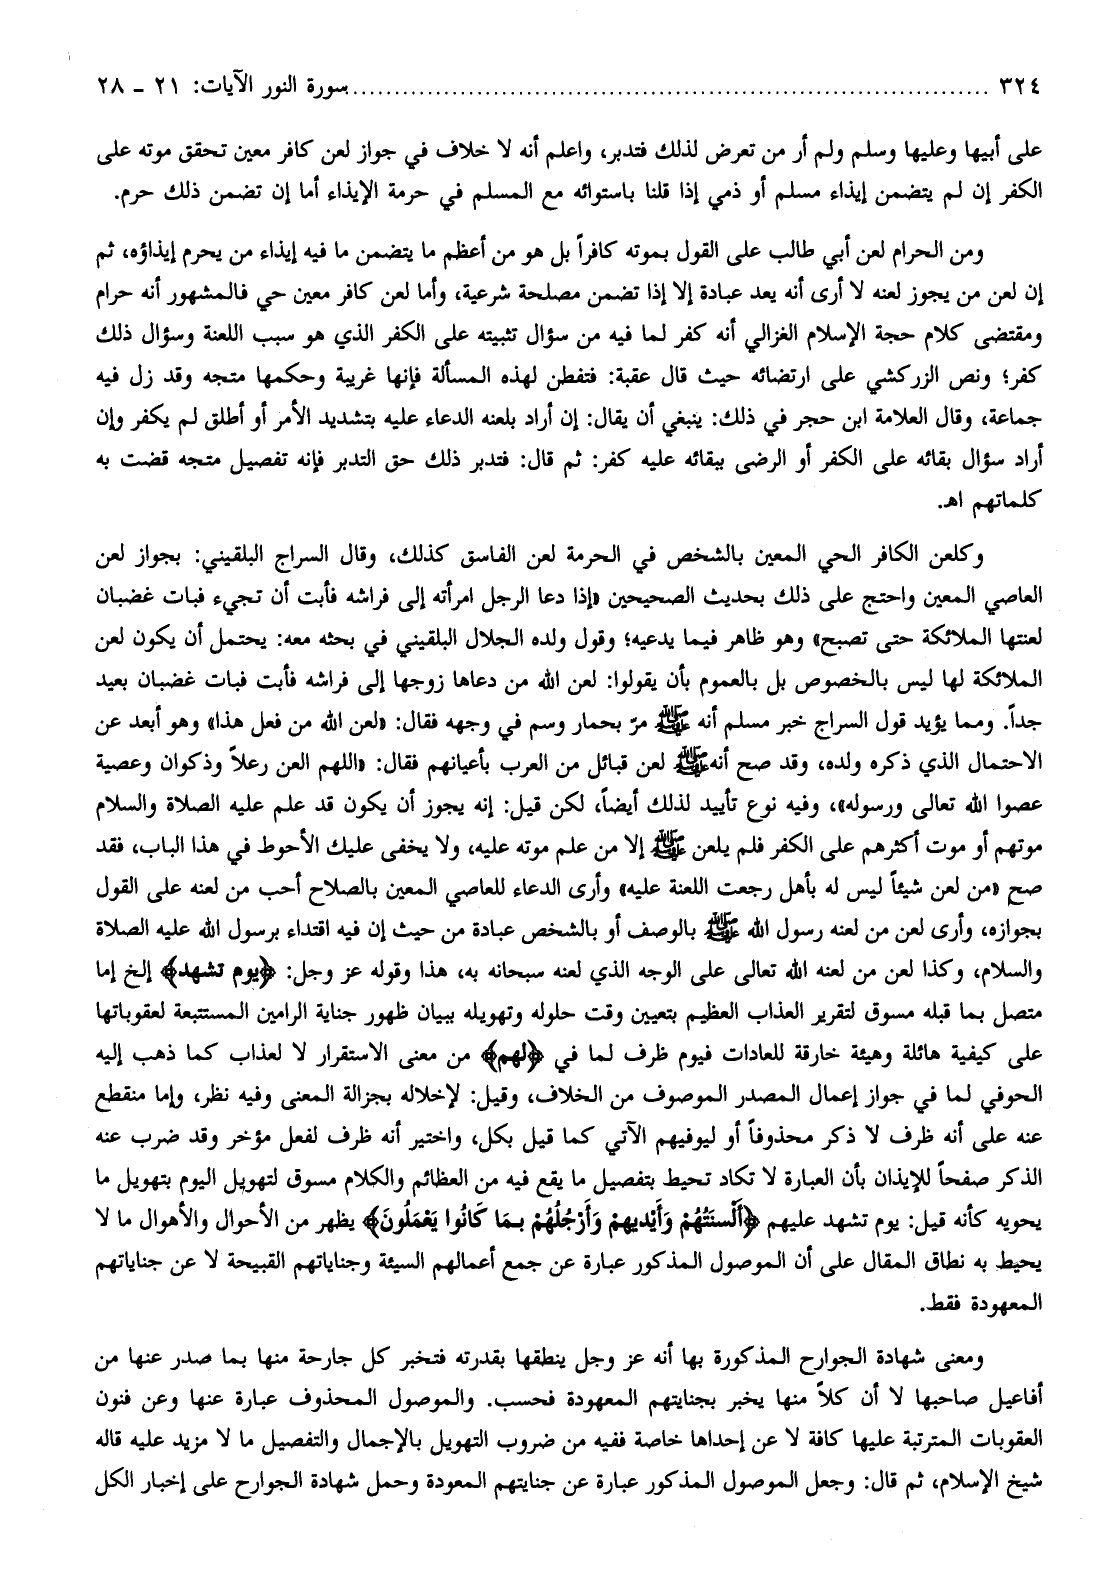 ٣٢٤ ........................................................................ سورة النور الآيات: ٢١ - ٢٨
على أبيها وعليها وسلم ولم أر من تعرض لذلك فتدبر، واعلم أنه لا خلاف في جواز لعن كافر معين تحقق موته على
الكفر إن لم يتضمن إيذاء مسلم أو ذمي إذا قلنا باستوائه مع المسلم في حرمة الإيذاء أما إن تضمن ذلك حرم.
ومن الحرام لعن أبي طالب على القول بموته كافراً بل هو من أعظم ما يتضمن ما فيه إيذاء من يحرم إيذاؤه، ثم
إن لعن من يجوز لعنه لا أرى أنه يعد عبادة إلا إذا تضمن مصلحة شرعية، وأما لعن كافر معين حي فالمشهور أنه حرام
ومقتضى كلام حجة الإسلام الغزالي أنه كفر لما فيه من سؤال تثبيته على الكفر الذي هو سبب اللعنة وسؤال ذلك
كفر؛ ونص الزركشي على ارتضائه حيث قال عقبة: فتفطن لهذه المسألة فإنها غريبة وحكمها متجه وقد زل فيه
جماعة، وقال العلامة ابن حجر في ذلك: ينبغي أن يقال: إن أراد بلعنه الدعاء عليه بتشديد الأمر أو أطلق لم يكفر وإن
أراد سؤال بقائه على الكفر أو الرضى ببقائه عليه كفر: ثم قال: فتدبر ذلك حق التدبر فإنه تفصيل متجه قضت به
كلماتهم اهـ.
وكلعن الكافر الحي المعين بالشخص في الحرمة لعن الفاسق كذلك، وقال السراج البلقيني: بجواز لعن
العاصي المعين واحتج على ذلك بحديث الصحيحين «إذا دعا الرجل امرأته إلى فراشه فأبت أن تجيء فبات غضبان
لعنتها الملائكة حتى تصبح» وهو ظاهر فيما يدعيه؛ وقول ولده الجلال البلقيني في بحثه معه: يحتمل أن يكون لعن
الملائكة لها ليس بالخصوص بل بالعموم بأن يقولوا: لعن الله من دعاها زوجها إلى فراشه فأبت فبات غضبان بعيد
جداً. ومما يؤيد قول السراج خبر مسلم أنه ﷺ مرّ بحمار وسم في وجهه فقال: «لعن الله من فعل هذا» وهو أبعد عن
الاحتمال الذي ذكره ولده، وقد صح أنه ﷺ لعن قبائل من العرب بأعيانهم فقال: «اللهم العن رعلاً وذكوان وعصية
عصوا الله تعالى ورسوله»، وفيه نوع تأييد لذلك أيضاً، لكن قيل: إنه يجوز أن يكون قد علم عليه الصلاة والسلام
موتهم أو موت أكثرهم على الكفر فلم يلعن ﷺ إلا من علم موته عليه، ولا يخفى عليك الأحوط في هذا الباب، فقد
صح «من لعن شيئاً ليس له بأهل رجعت اللعنة عليه» وأرى الدعاء للعاصي المعين بالصلاح أحب من لعنه على القول
بجوازه، وأرى لعن من لعنه رسول الله ﷺ بالوصف أو بالشخص عبادة من حيث إن فيه اقتداء برسول الله عليه الصلاة
والسلام، وكذا لعن من لعنه الله تعالى على الوجه الذي لعنه سبحانه به، هذا وقوله عز وجل: ﴿يوم تشهد﴾ إلخ إما
متصل بما قبله مسوق لتقرير العذاب العظيم بتعيين وقت حلوله وتهويله ببيان ظهور جناية الرامين المستتبعة لعقوباتها
على كيفية هائلة وهيئة خارقة للعادات فيوم ظرف لما في ﴿لهم﴾ من معنى الاستقرار لا لعذاب كما ذهب إليه
الحوفي لما في جواز إعمال المصدر الموصوف من الخلاف، وقيل: لإخلاله بجزالة المعنى وفيه نظر، وإما منقطع
عنه على أنه ظرف لا ذكر محذوفاً أو ليوفيهم الآتي كما قيل بكل، واختير أنه ظرف لفعل مؤخر وقد ضرب عنه
الذكر صفحاً للإيذان بأن العبارة لا تكاد تحيط بتفصيل ما يقع فيه من العظائم والكلام مسوق لتهويل اليوم بتهويل ما
يحويه كأنه قيل: يوم تشهد عليهم ﴿أَلْسنَتُهُمْ وَأَيْديهمْ وَأَرْجُلُهُمْ بمَا كَانُوا يَعْمَلُونَ﴾ يظهر من الأحوال والأهوال ما لا
يحيط به نطاق المقال على أن الموصول المذكور عبارة عن جمع أعمالهم السيئة وجناياتهم القبيحة لا عن جناياتهم
المعهودة فقط.
ومعنى شهادة الجوارح المذكورة بها أنه عز وجل ينطقها بقدرته فتخبر كل جارحة منها بما صدر عنها من
أفاعيل صاحبها لا أن كلاً منها يخبر بجنايتهم المعهودة فحسب. والموصول المحذوف عبارة عنها وعن فنون
العقوبات المترتبة عليها كافة لا عن إحداها خاصة ففيه من ضروب التهويل بالإجمال والتفصيل ما لا مزيد عليه قاله
شيخ الإسلام، ثم قال: وجعل الموصول المذكور عبارة عن جنايتهم المعودة وحمل شهادة الجوارح على إخبار الكل